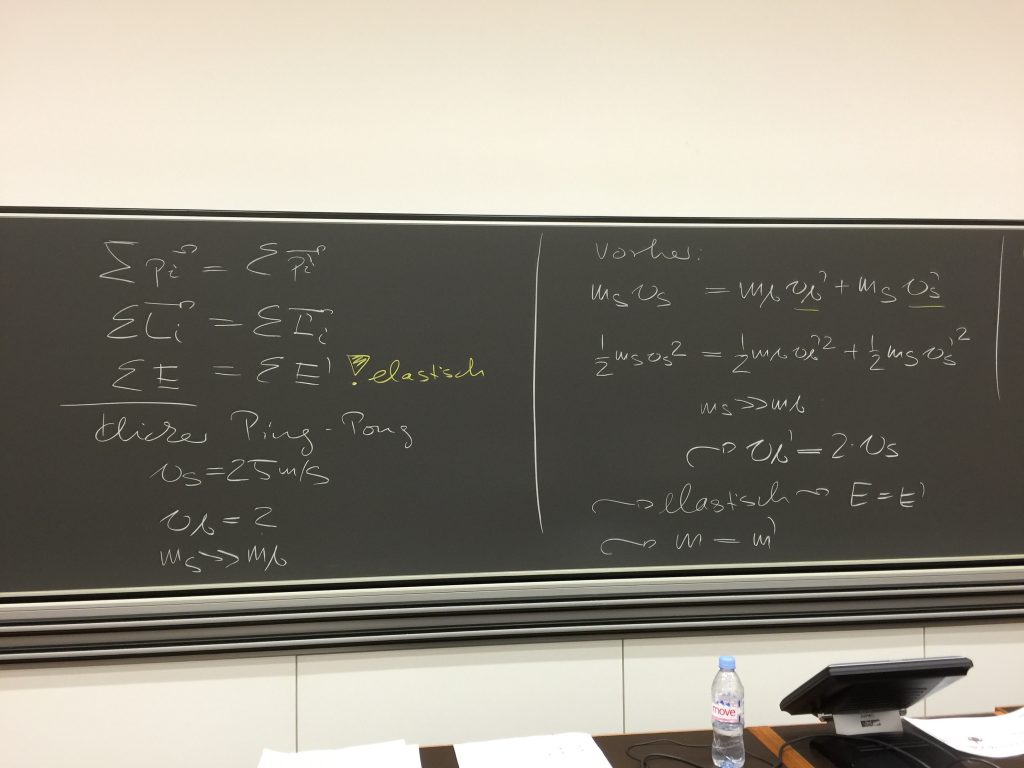 Σ p⃗ᵢ = Σ p⃗ᵢ'
Σ L⃗ᵢ = Σ L⃗'ᵢ
Σ E = Σ E' ! elastisch
Clicker Ping-Pong
v_S = 25 m/s
v_b = ?
m_S >> m_b
Vorher:
m_S v_S = m_b v_b' + m_S v_S'
½ m_S v_S² = ½ m_b v_b'² + ½ m_S v_S'²
m_S >> m_b
↝ v_b' = 2·v_S
↝ elastisch ↝ E = E'
↝ m = m'
move